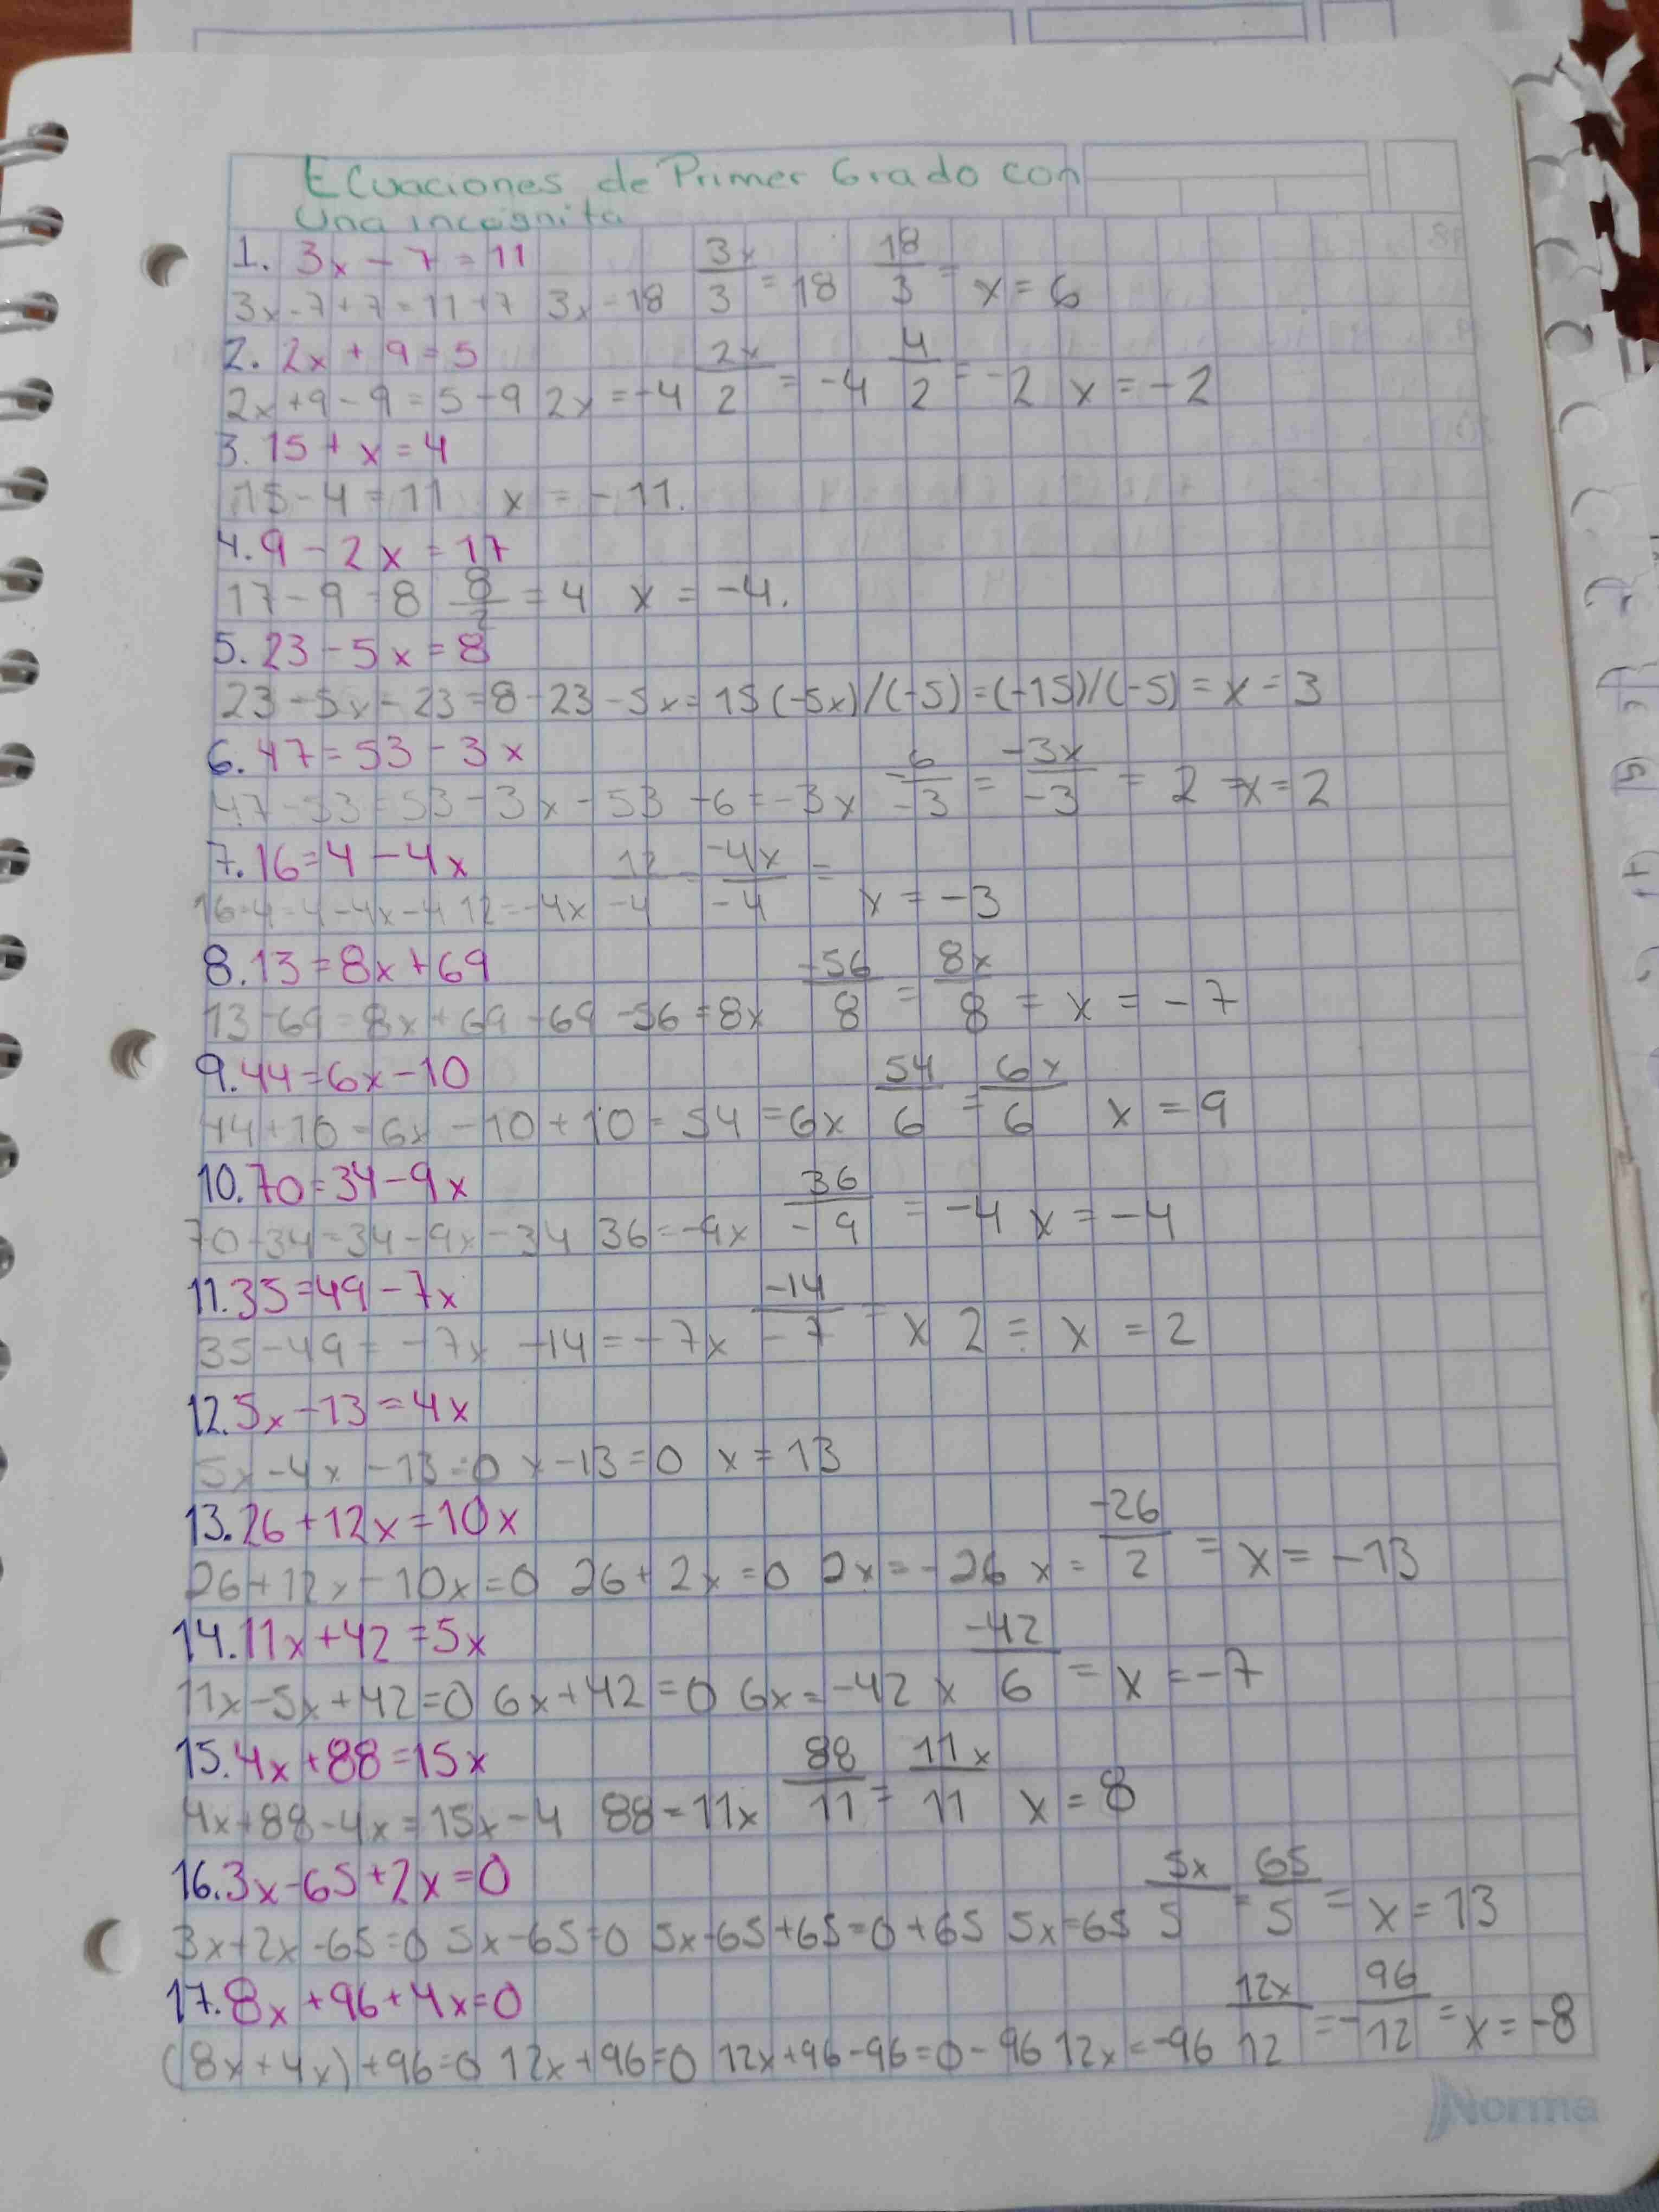 Ecuaciones de Primer Grado con
Una incognita
1. 3x - 7 = 11
3x - 7 + 7 = 11 + 7 3x = 18 3x/3 = 18 18/3 = x = 6
2. 2x + 9 = 5
2x + 9 - 9 = 5 - 9 2x = -4 2x/2 = -4 4/2 = -2 x = -2
3. 15 + x = 4
15 - 4 = 11 x = -11.
4. 9 - 2x = 17
17 - 9 = 8 8/2 = 4 x = -4.
5. 23 - 5x = 8
23 - 5x - 23 = 8 - 23 - 5x = 15 (-5x)/(-5) = (-15)/(-5) = x = 3
6. 47 = 53 - 3x
47 - 53 = 53 - 3x - 53 -6 = -3x -6/-3 = -3x/-3 = 2 = x = 2
7. 16 = 4 - 4x
16 - 4 = 4 - 4x - 4 12 = -4x 12/-4 = -4x/-4 = x = -3
8. 13 = 8x + 69
13 - 69 = 8x + 69 - 69 -56 = 8x -56/8 = 8x/8 = x = -7
9. 44 = 6x - 10
44 + 10 = 6x - 10 + 10 = 54 = 6x 54/6 = 6x/6 x = 9
10. 70 = 34 - 9x
70 - 34 = 34 - 9x - 34 36 = -9x 36/-9 = -4 x = -4
11. 35 = 49 - 7x
35 - 49 = -7x -14 = -7x -14/-7 = x 2 = x = 2
12. 5x - 13 = 4x
5x - 4x - 13 = 0 x - 13 = 0 x = 13
13. 26 + 12x = 10x
26 + 12x - 10x = 0 26 + 2x = 0 2x = -26 x = -26/2 = x = -13
14. 11x + 42 = 5x
11x - 5x + 42 = 0 6x + 42 = 0 6x = -42 x -42/6 = x = -7
15. 4x + 88 = 15x
4x + 88 - 4x = 15x - 4 88 = 11x 88/11 = 11x/11 x = 8
16. 3x - 65 + 2x = 0
3x + 2x - 65 = 0 5x - 65 = 0 5x - 65 + 65 = 0 + 65 5x = 65 5x/5 = 65/5 = x = 13
17. 8x + 96 + 4x = 0
(8x + 4x) + 96 = 0 12x + 96 = 0 12x + 96 - 96 = 0 - 96 12x = -96 12x/12 = -96/12 = x = -8
Norma